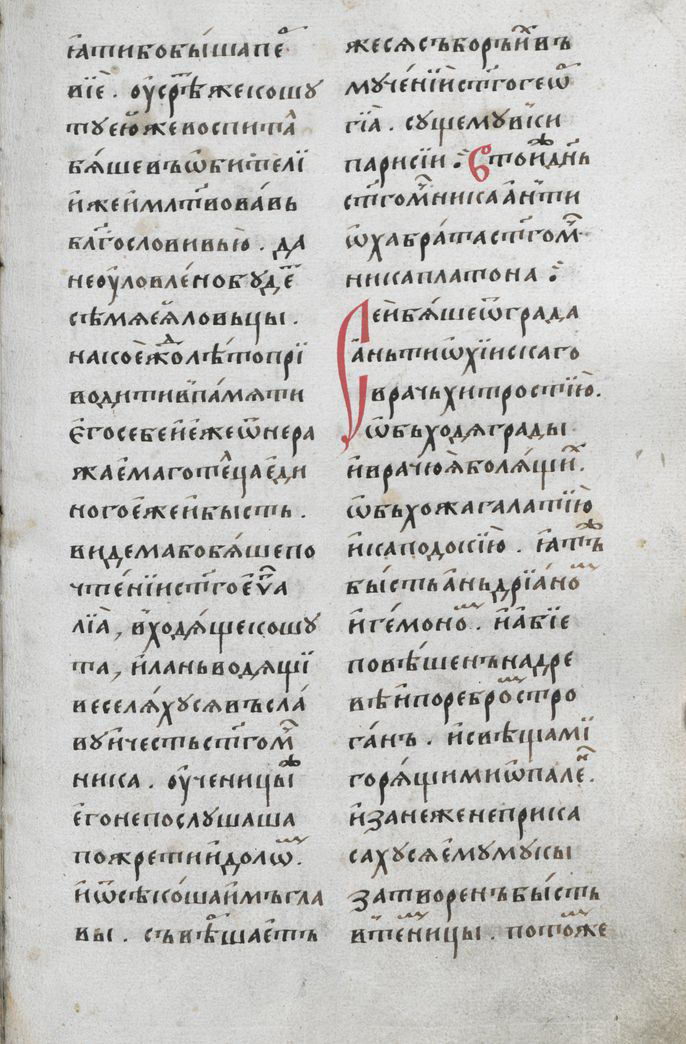 ꙗтибобышапе҇
вїе . оусрѣ҇жекошу
туеюжевоспита҇
бѧшевъѡбителї
ижеимл҃твова́въ
бл҃гословивъю . да
неоуловле́нобуде҇
сѣмѧеѧ҇ловьцы .
накое́ждолѣ҇топрї
водитивпа́мѧти
єгосебеиежеѡ҇нера
жаемаготе́льцаеди
ногое́жеибысть .
видемабобѧшепо
чтенїист҃гоеѵа҇
лїа , входа́щекошу
та , иланьводѧщї
веселѧхусѧвъсла́
вуичестьст҃гом҇
ника . оученицы҇ж
егонепослушаша
пожретиидоло҇м .
иѡсѣкошаимъгла
вы . съвѣ҇шаетъ
жесѧсъборъи҇въ
муче́нїист҃гогеѡ҇
гїа . сущемувки
парисїи : Втоиж҇дн҃ь
ст҃гом҇никаанти
ѡхабратаст҃гом҇
никаплатона :
Сеибѧшеѿграда
аньтиѡхїискаго
врачьхитростїю .
ѡбъходѧграды
иврачюѧболѧщи҇ .
ѡбъхожагалатїю
икападокїю . ꙗт҇ж
бы́стьа́ньдрїа́но҇м
иге́моно҇м . иа́бїе
повѣ́шенънадре
вѣипоребро҇мстро
га́нъ . исвѣщамї
горѧщимиѡпале҇н .
иза́неженеприка
са́хусѧе́мумукы
затворенъбысть
вте҇мницы . пото҇мже